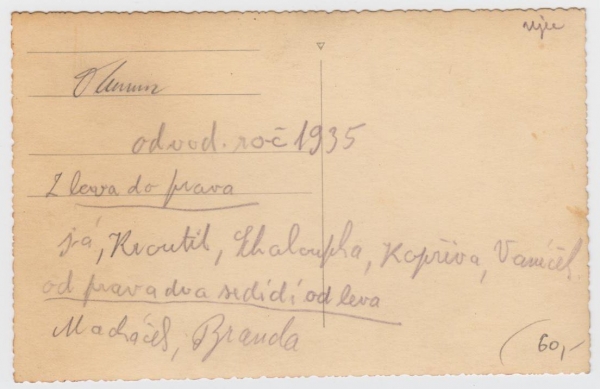 Olomouc
odvod. roč 1935
Z leva do prava
já, Kroutil, Chaloupka, Kopřiva, Vaníček
od prava dva sedící od leva
Macháček, Branda
60,-